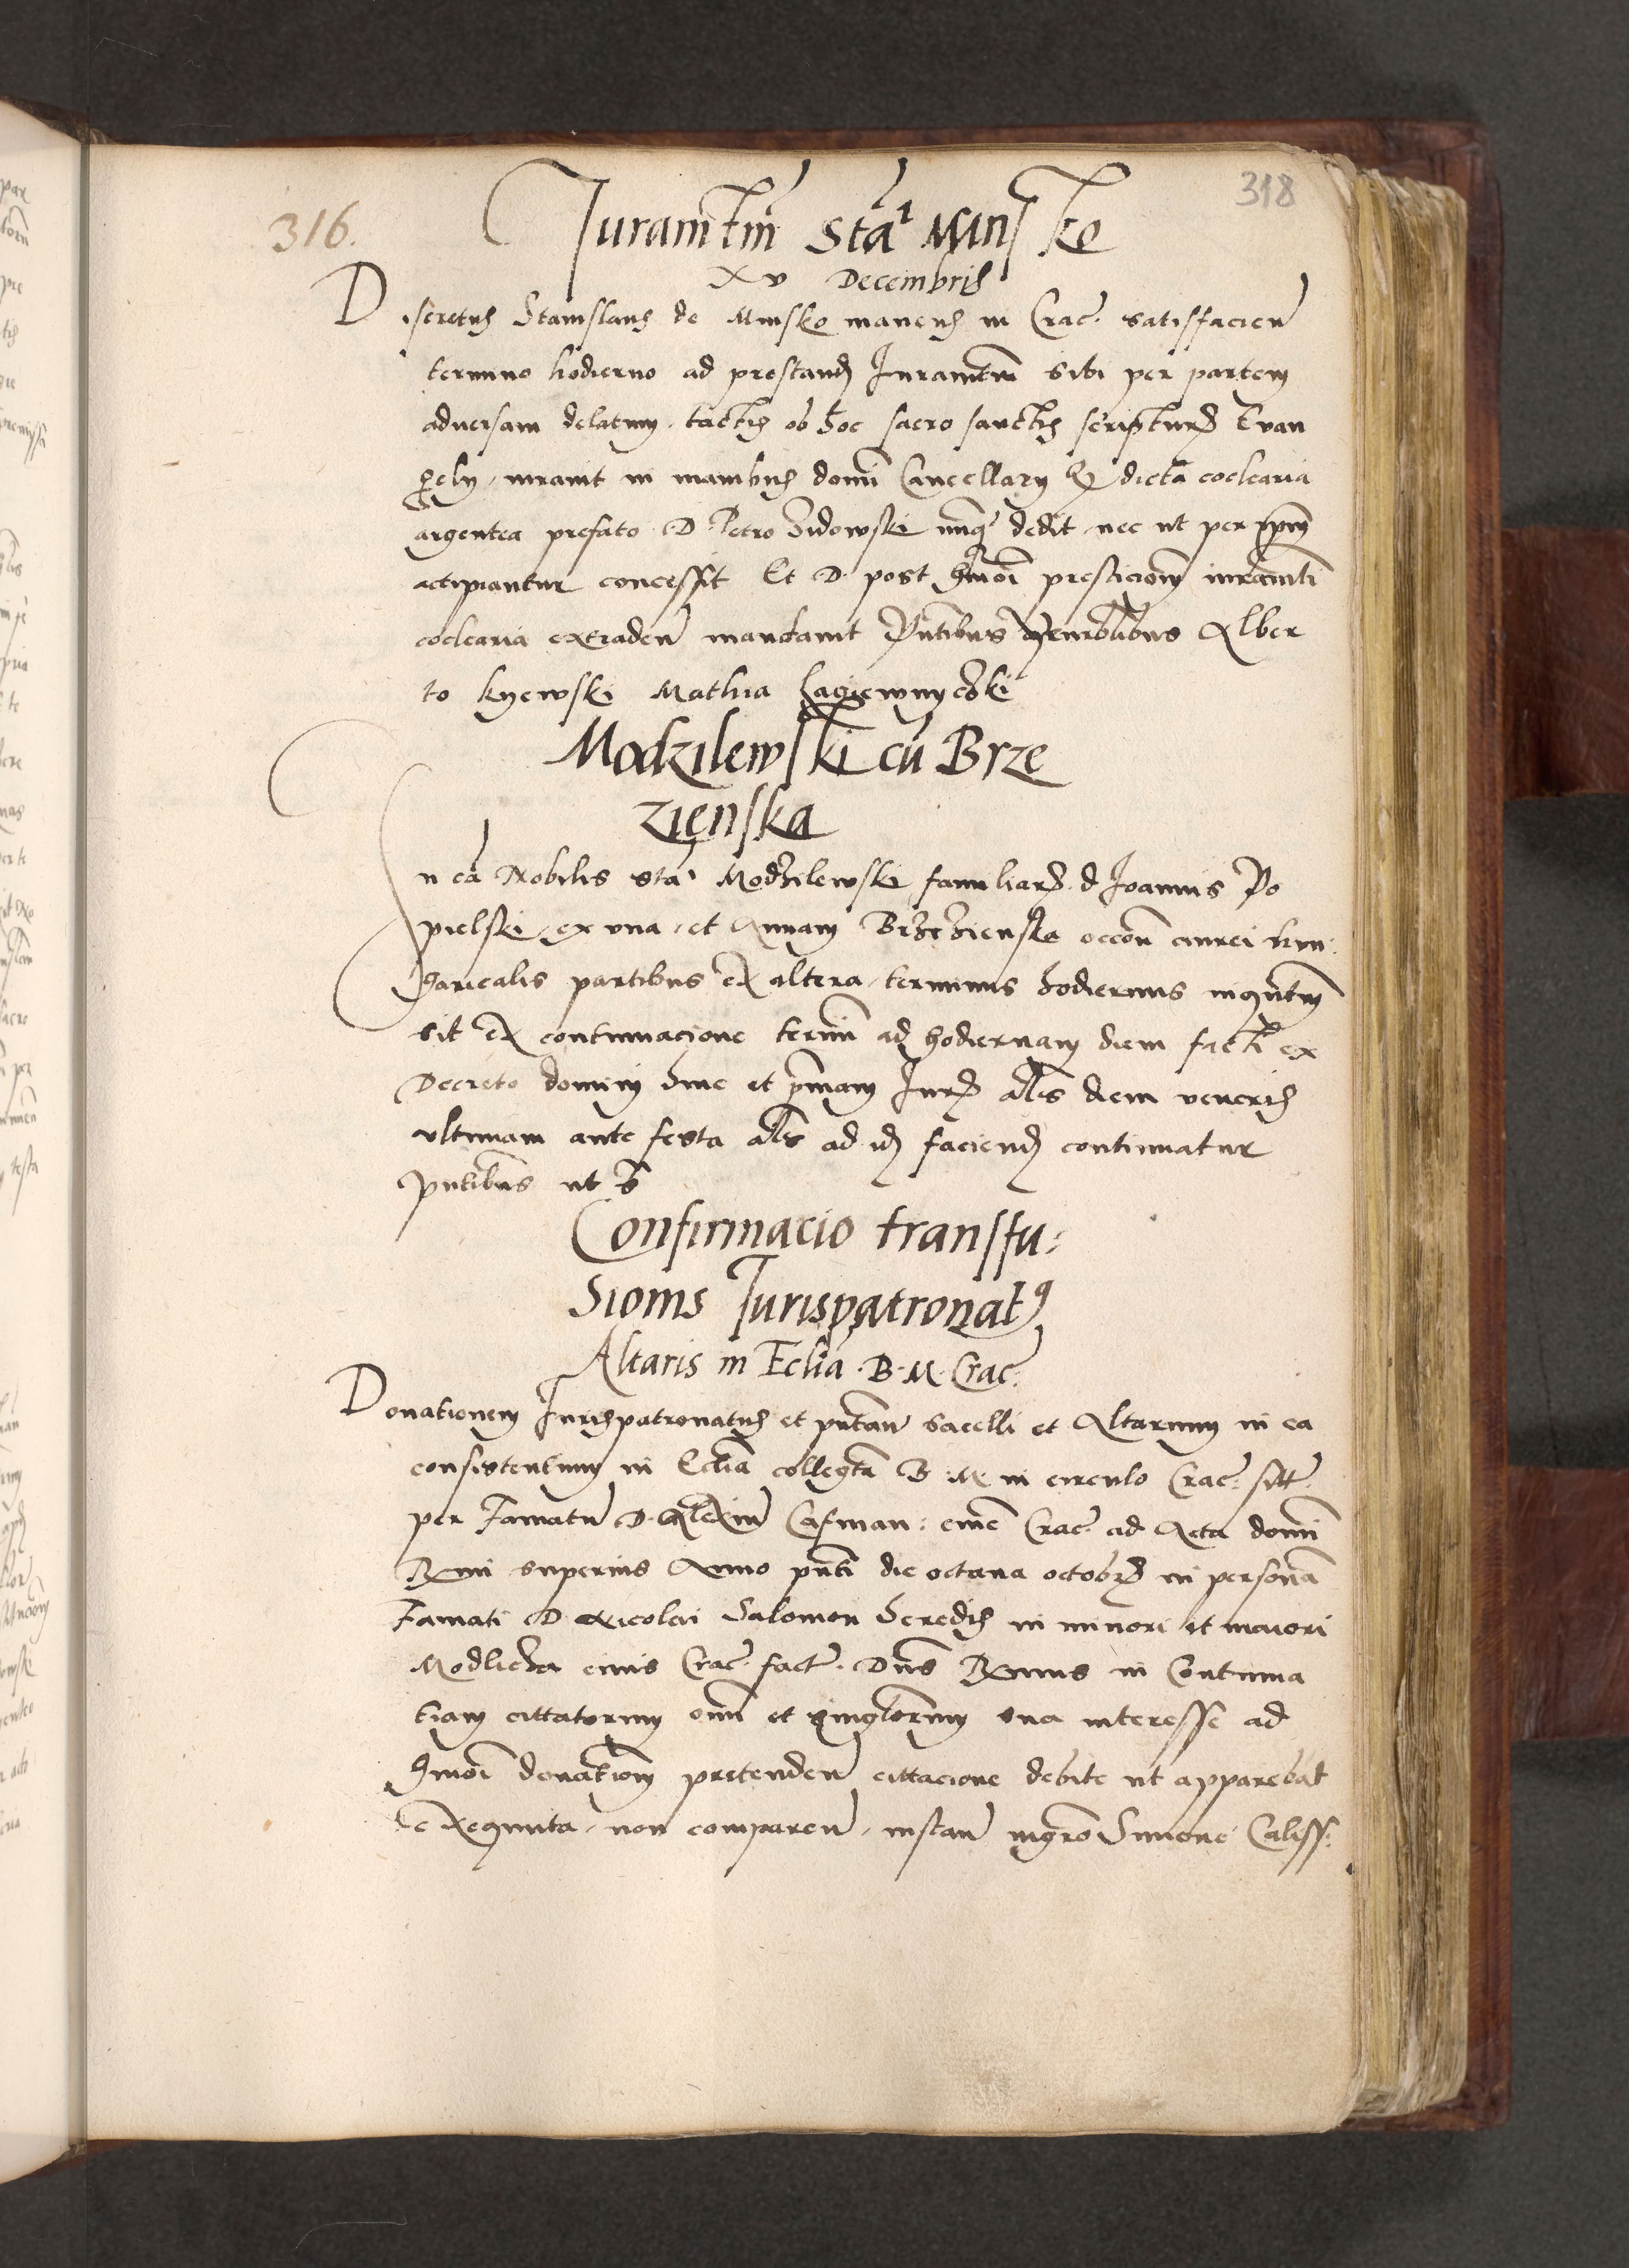 316.
318
Juramtm Sta: Minske
xv Decembris
Discretus Stanislaus de Minsko manens in Crac. satisfacien
termino hodierno ad prestand Juramtm sibi per partem
adversam delatum, tactis ob hoc sacro sanctis scripturis Evan
gelii, iuravit in manibus domi Cancellarii q dicta coclearia
argentea prefato D. Petro Zidowski nunq dedit, nec ut per ipm
accipiantur concessit Et D. post hmoi prestacionem iuramti
coclearia extraden mandavit Pntibus Venerabilibus Alber
to Kyewski Mathia Lagiewnyczki
Modzilewski cu Brze
zienska
In ca Nobilis Sta: Modzilewski familiaris d Joannis Po
pielski, ex una, et Annam Brzezienska occon aurei hun:
garicalis partibus ex altera, terminus hodiernus
sit ex contumacione termi ad hodiernam diem facti ex
Decreto domini sine et pmam Juris als diem veneris
ultimam ante festa als ad id faciend continuatur
pntibus ut s
Confirmacio transfu:
sionis Jurispatronat9
Altaris in Eclia B. M. Crac.
Donationem Jurispatronatus et pntan sacelli et Altarium in ea
consistentium in Eclia collegta B. M. in circulo Crac: sitt
per Famatu D. Alexiu Casman: civem Crac. ad Acta domi
Rmi superius Anno pnti die octava octobris in persona
Famati D. Nicolai Salomon heredis in minori et maiori
Modlicza civis Crac. fact. Dns Rmus in Contuma
tiam cittatorum omi et singlorum sua interesse ad
hmoi donationem pretenden cittacione debite ut apparebat
exequuta, non comparen, instan mgro Simone Caliss: